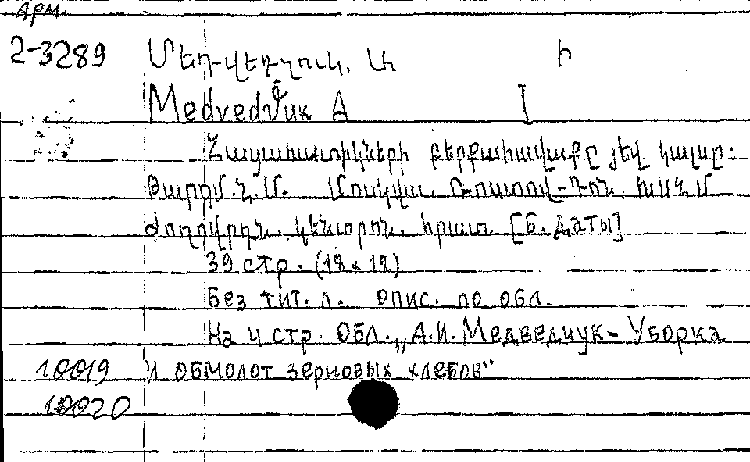 Арм.
2-3289 Մեդվեդչուկ, Ա Ի
Medvedčuk A I
Հացահատիկների բերքահավաքը յեվ կալսը:
Թարգմ. Հ. Մ. Մոսկվա, Ռոստով-Դոն, ԽՍՀՄ
ժողովրդն. կենտրոն. հրատ [б. даты]
39 стр. (18 x 12)
Без тит. л. Опис. по обл.
На 4 стр. Обл. „А.И. Медведчук - Уборка
и обмолот зерновых хлебов"
10019
10020